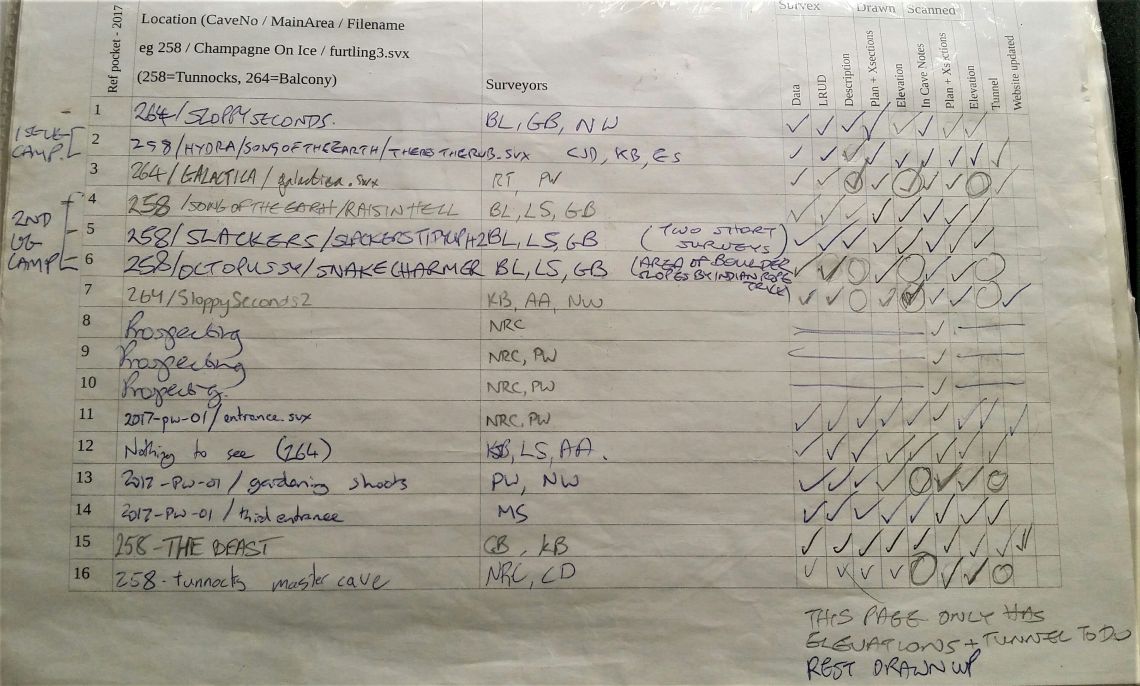 Survex Drawn Scanned
Ref pocket - 2017
Location (CaveNo / MainArea / Filename
eg 258 / Champagne On Ice / furtling3.svx
(258=Tunnocks, 264=Balcony)
Surveyors
Data
LRUD
Description
Plan + Xsections
Elevation
In Cave Notes
Plan + Xsictions
Elevation
Tunnel
Website updated
1 264/SLOPPYSECONDS. BL, GB, NW
CAMP.
2 258/HYDRA/SONGOFTHEEARTH/THERESTHERUB.svx CJD, KB, ES
3 264/GALACTICA/galactica.svx RT, PW
4 258/SONGOFTHEEARTH/RAISINHELL BL, LS, GB
2ND
UG
CAMP
5 258/SLACKERS/SLACKERSTIPYUPH2 BL, LS, GB (TWO SHORT
SURVEYS)
6 258/OCTOPUSSY/SNAKECHARMER BL, LS, GB (AREA OF BOULDER
SLOPES BY INDIAN ROPE
TRICK)
7 264/SloppySeconds2 KB, AA, NW
8 Prospecting NRC
9 Prospecting NRC, PW
10 Prospecting. NRC, PW
11 2017-pw-01/entrance.svx NRC, PW
12 Nothing to see (264) KB, LS, AA.
13 2017-PW-01/gardening shoots PW, NW
14 2017-PW-01/third entrance MS
15 258-THE BEAST GB, KB
16 258-tunnocks master cave NRC, CD
THIS PAGE ONLY HAS
ELEVATIONS + TUNNEL TO DO
REST DRAWN UP